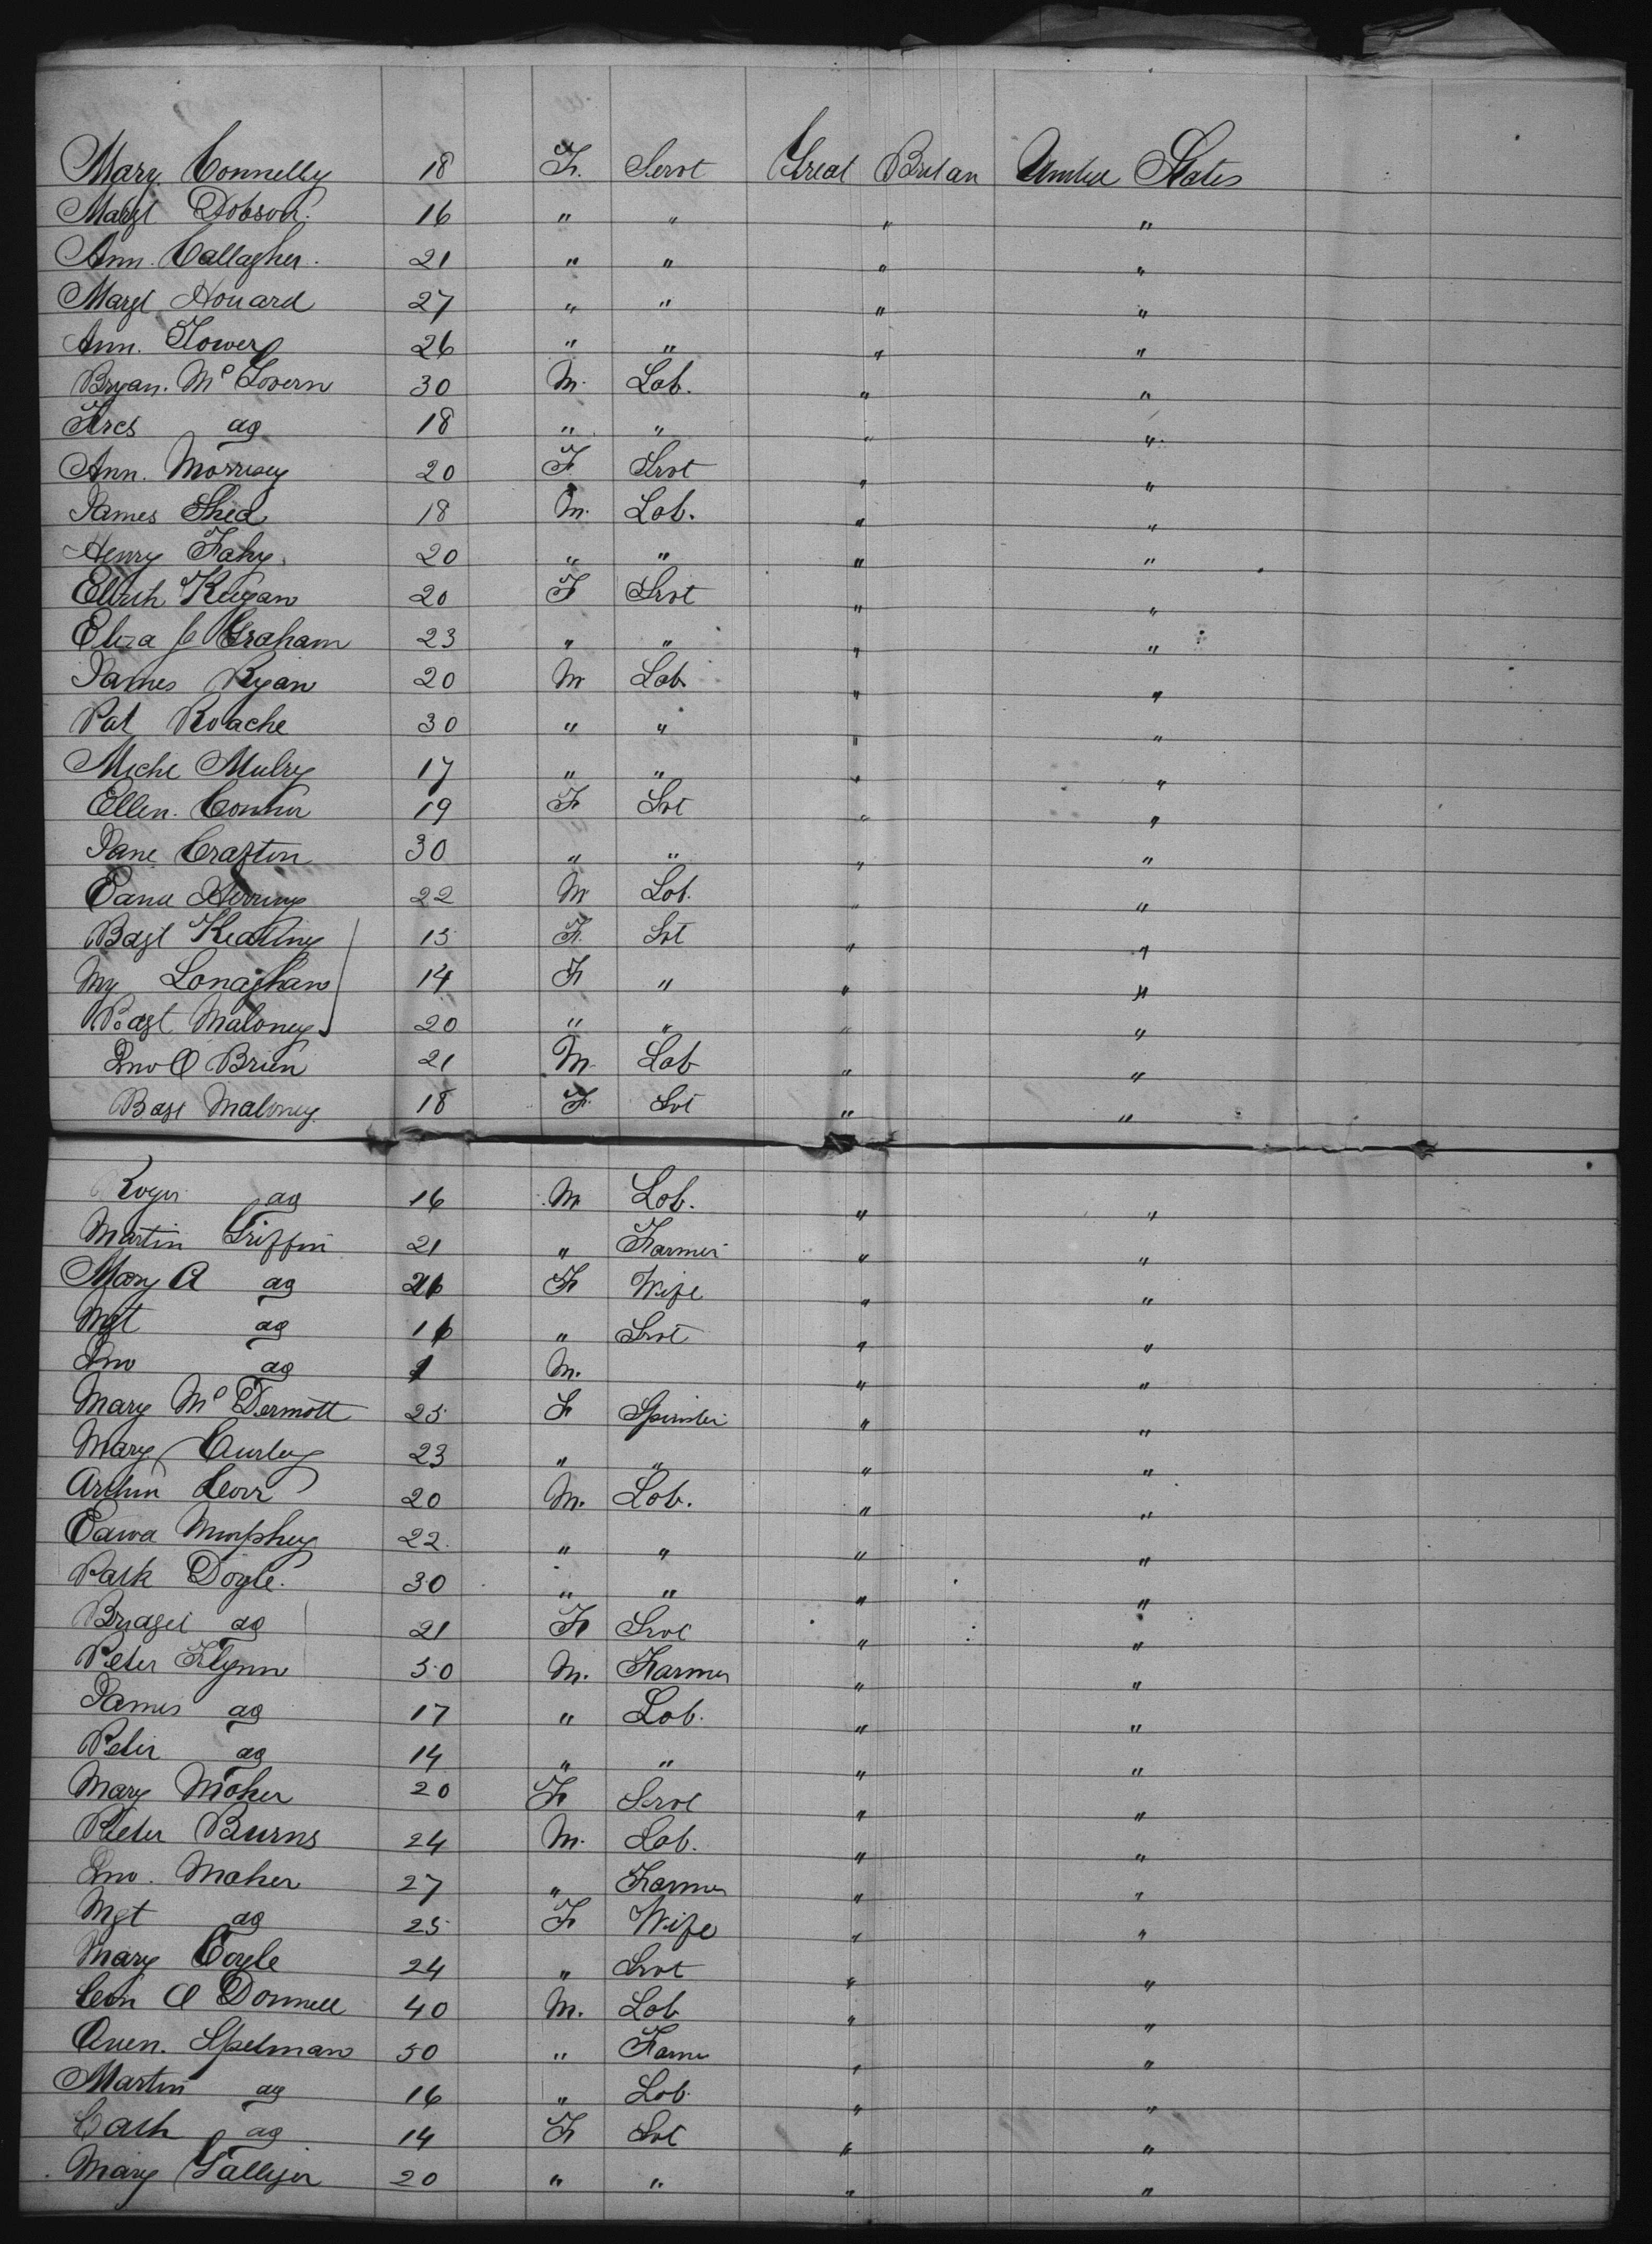 Mary Connelly 18 F. Servt Great Britan United States
Margt Dobson. 16 " " " "
Ann. Callagher. 21 " " " "
Margt Houard 27 " " " "
Ann. Power 26 " " " "
Bryan. McGovern 30 M. Lab. " "
Frcs ag 18 " " " "
Ann. Morrisey 20 F Srvt " "
James Shea 18 M. Lab. " "
Henry Fahy. 20 " " " "
Elizth Keegan 20 F Srvt " "
Eliza J Graham 23 " " " "
James Ryan 20 M Lab. " "
Pat Roache 30 " " " "
Michl Mulry 17 " " " "
Ellen. Connor 19 F Svt " "
Jane Crafton 30 " " " "
22 M Lab. " "
Bdgt Keating 15 F. Svt " "
My Lonaghan 14 F " " "
Bdgt Maloney 20 " " " "
Jno O Brien 21 M. Lab " "
Bdgt Maloney. 18 F. Svt " "
Roger ag 16 M Lab. " "
Martin Griffin 21 " Farmer " "
Mary A ag 26 F Wife " "
Mgt ag 16 " Srvt " "
Jno ag 1 M. " "
Mary McDermott 25 F Spinster " "
Mary Curley 23 " " " "
Arthur Corr 20 M. Lab. " "
Edwd Murphey 22. " " " "
Patk Doyle. 30 " " " "
Bridget ag 21 F Srvt " "
Peter Flynn 50 M. Farmer " "
James ag 17 " Lab. " "
Peter ag 14 " " " "
Mary Moher 20 F Srvt " "
Peter Burns 24 M. Lab. " "
Jno. Maher 27 " Farmer " "
Mgt ag 25 F Wife " "
Mary Coyle 24 " Srvt " "
Con O Donnell 40 M. Lab " "
Owen. Spelman 50 " Farmr " "
Martin ag 16 " Lab. " "
Cath ag 14 F Svt " "
Mary Galliger 20 " " " "